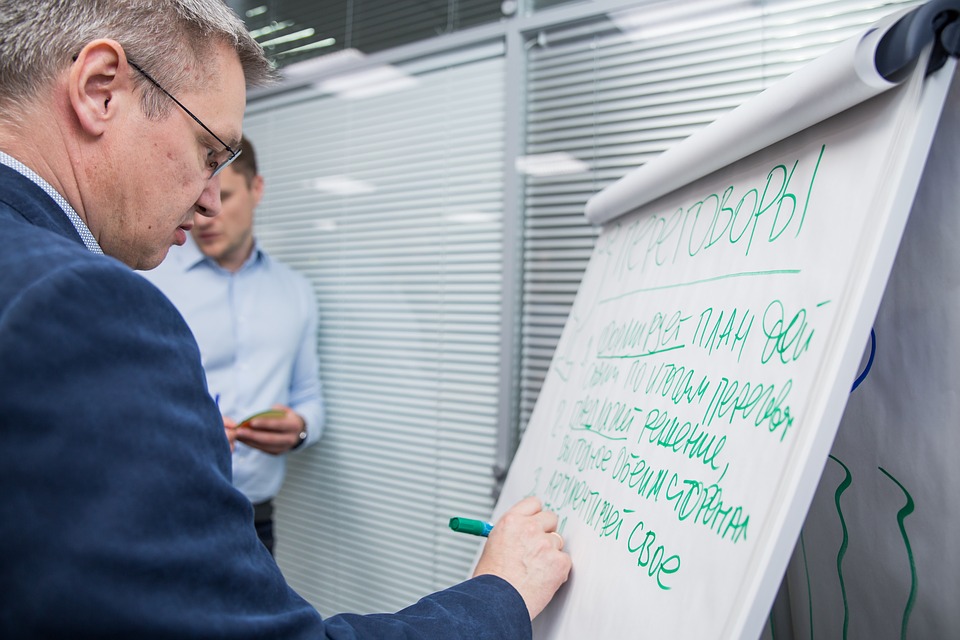 ПЕРЕГОВОРЫ
1. Формирует ПЛАН дей
ствий по итогам перегов
2. предлагает решение,
выгодное обеим сторонам
3. аргументирует свое